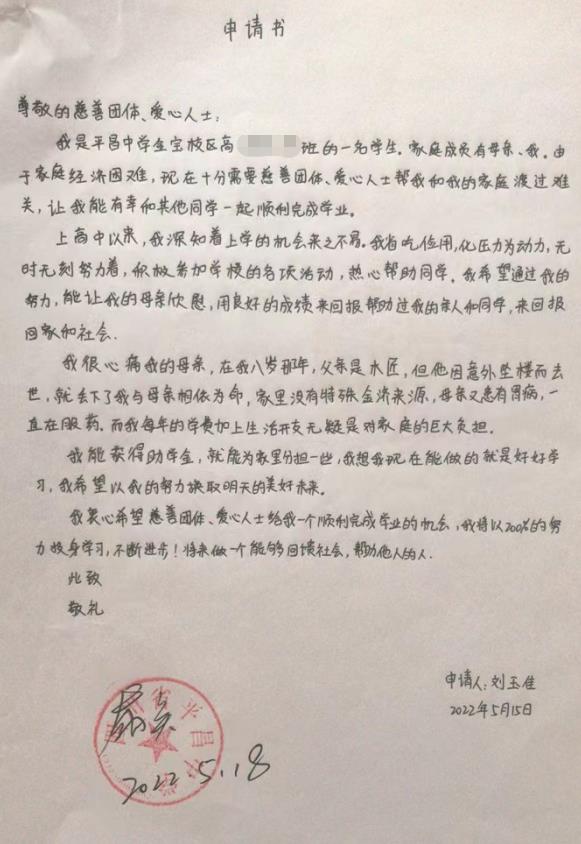 申请书
尊敬的慈善团体、爱心人士:
我是平昌中学金宝校区高
班的一名学生。家庭成员有母亲、我。由
于家庭经济困难,现在十分需要慈善团体、爱心人士帮我和我的家庭渡过难
关,让我能有幸和其他同学一起顺利完成学业。
上高中以来,我深知着上学的机会来之不易。我省吃俭用,化压力为动力,无
时无刻努力着,积极参加学校的各项活动,热心帮助同学。我希望通过我的
努力,能让我的母亲欣慰,用良好的成绩来回报帮助过我的亲人和同学,来回报
国家和社会。
我很心痛我的母亲,在我八岁那年,父亲是木匠,但他因意外坠楼而去
世,就丢下了我与母亲相依为命,家里没有特殊金济来源,母亲又患有胃病,一
直在服药。而我每年的学费加上生活开支无疑是对家庭的巨大负担。
我能获得助学金,就能为家里分担一些,我想我现在能做的就是好好学
习,我希望以我的努力换取明天的美好未来。
我衷心希望慈善团体、爱心人士给我一个顺利完成学业的机会,我将以200%的努
力投身学习,不断进步!将来做一个能够回馈社会,帮助他人的人.
此致
敬礼
申请人:刘玉佳
2022年5月15日
四川省平昌中学
2022.5.18